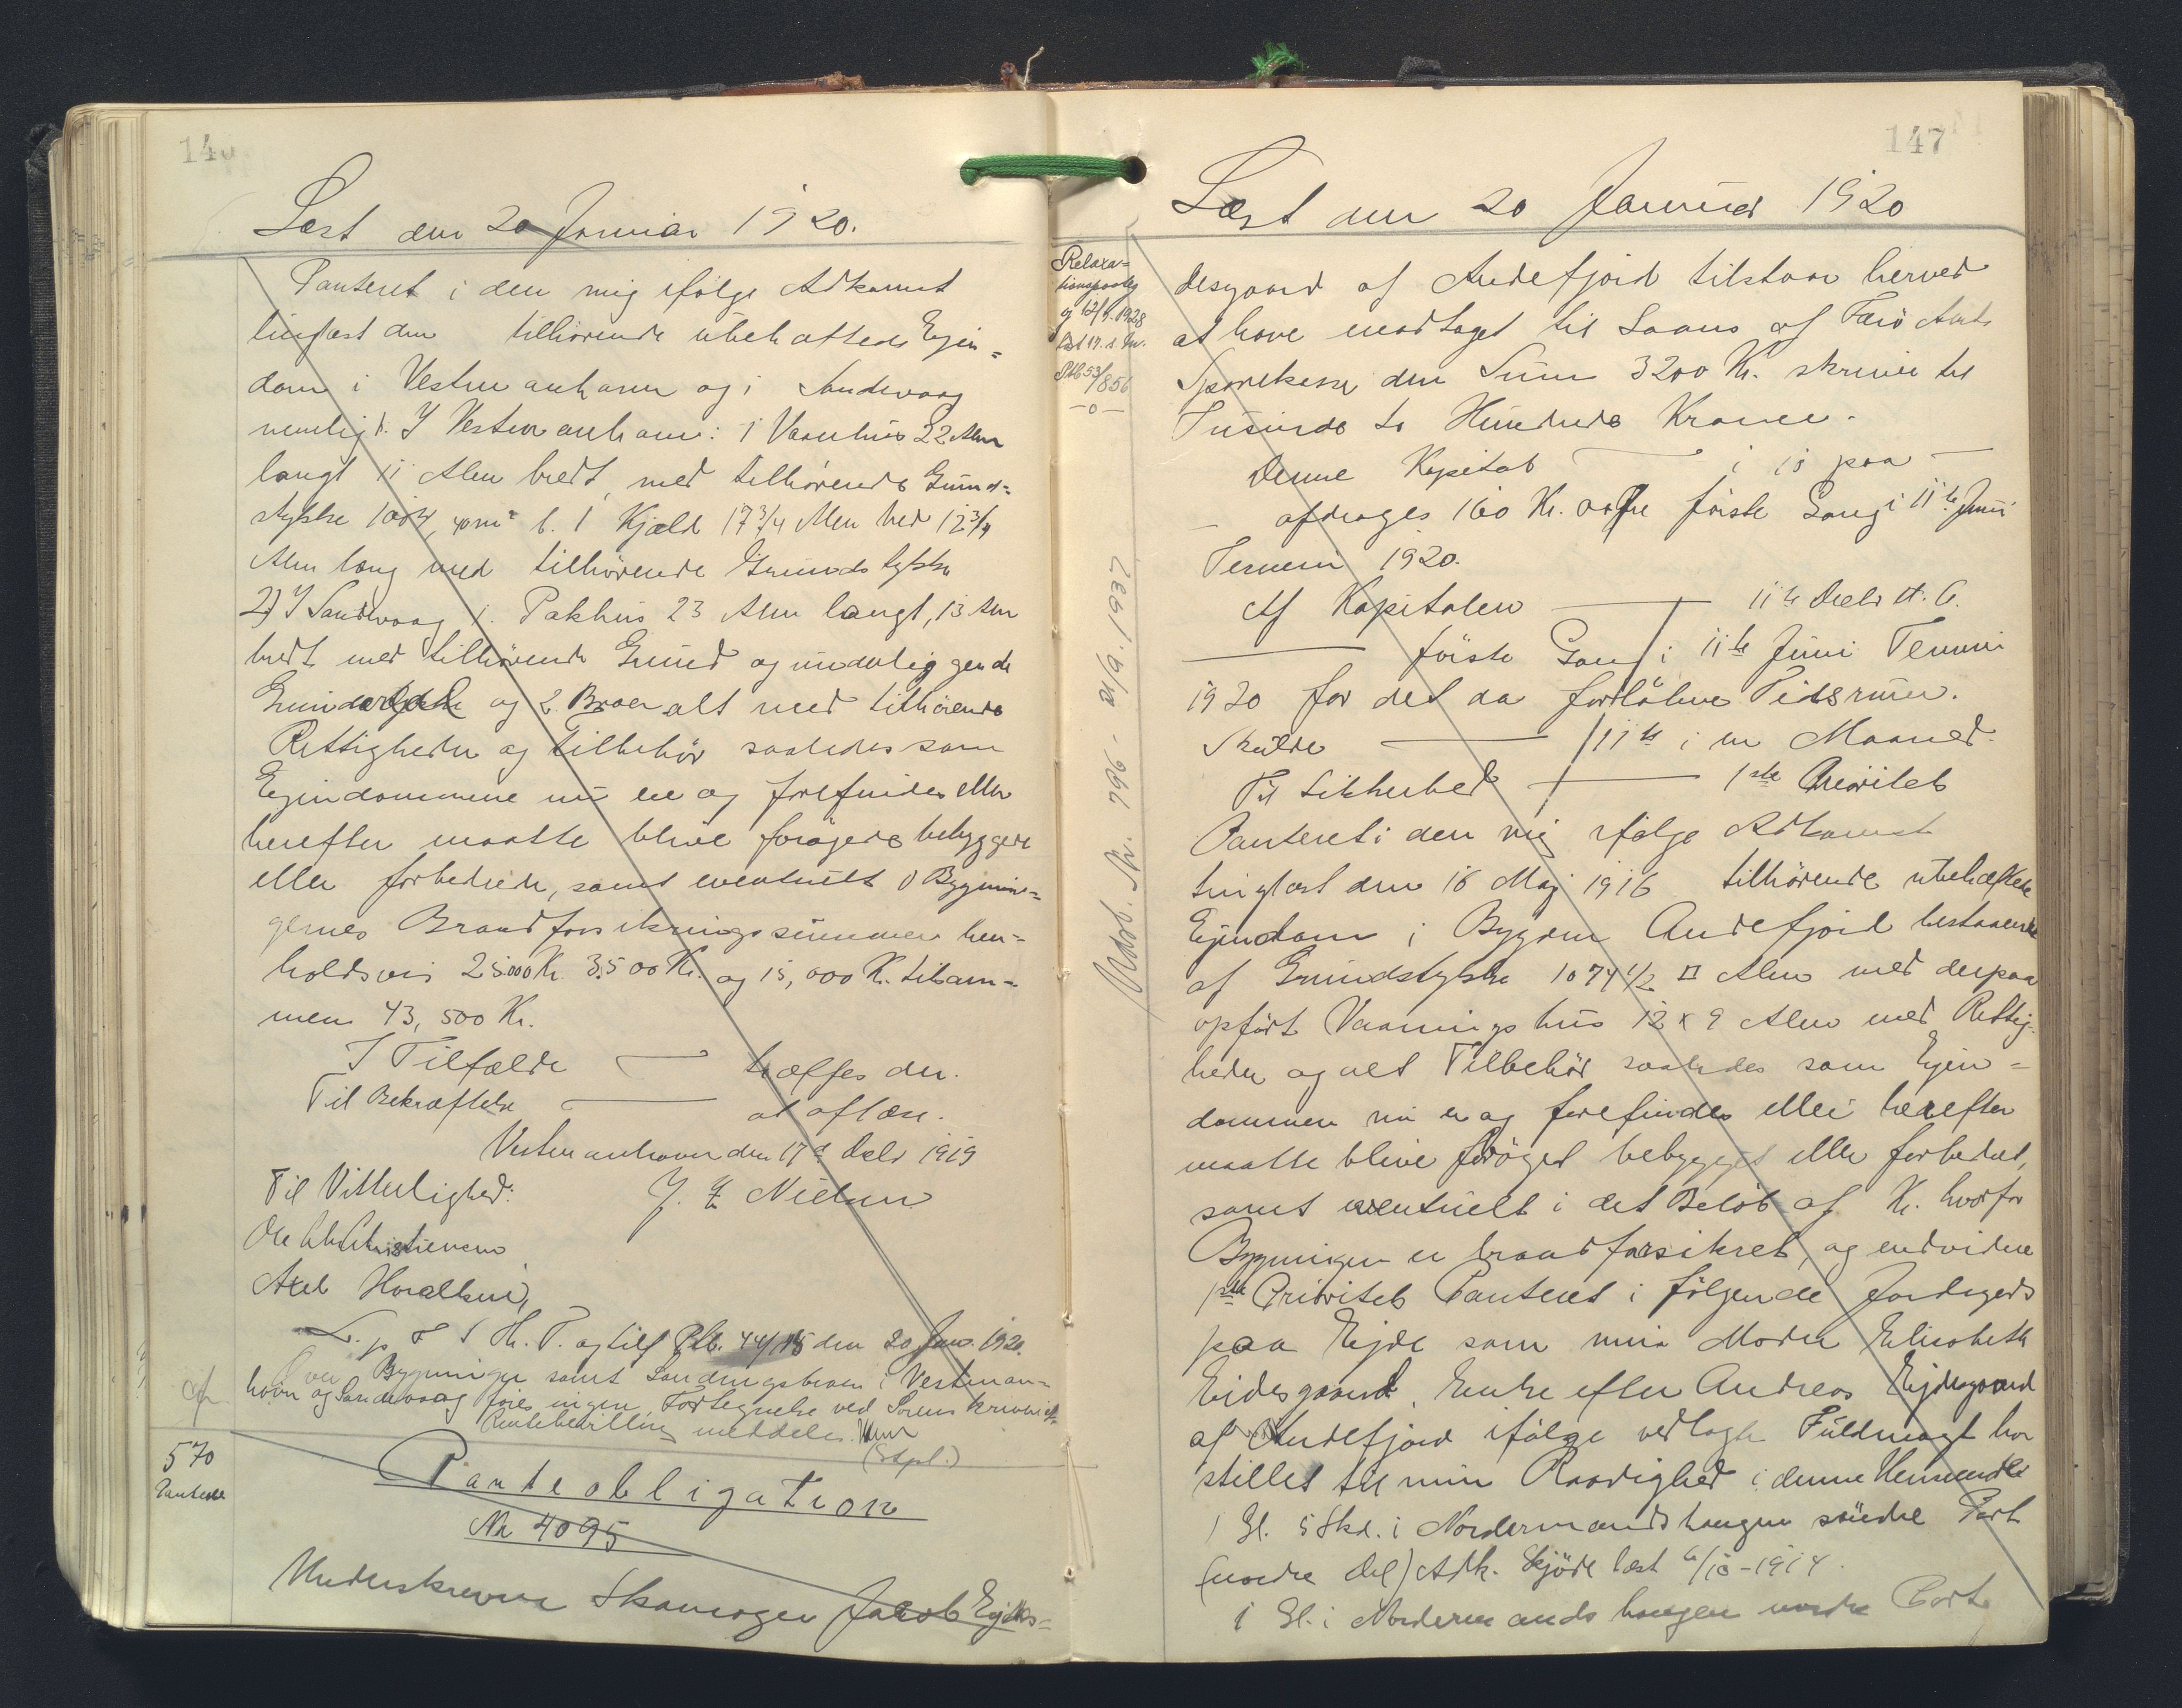 146
Læst den 20 Januar 1920.
Panteret i den mig ifølge Adkomst
tinglæst den tilhørende ubehæftede Ejen=
dom i Vestmanhavn og i Sandevaag
nemlig 1. I Vestmanhavn: 1 Vaanhus 22 Alen
langt 11 Alen bredt, med tilhørende Grund=
stykke 1004, 40 m² b. 1 Kjæld 17 3/4 Alen bred 12 3/4
Alen lang med tilhørende Grundstykke
2) I Sandevaag 1. Pakhus 23 Alen langt, 13 Alen
bredt med tilhørende Grund og underliggende
Grundstykke og 2 Broer alt med tilhørende
Rettigheder og Tilbehør saaledes som
Ejendommene nu er og forefindes eller
herefter maatte blive forøgede bebyggede
eller forbedrede, samt eventuelt i Bygnin=
gernes Brandforsikringssummer hen=
holdsvis 25000 Kr. 3.500 Kr. og 15,000 Kr. tilsam=
men 43,500 Kr.
I Tilfælde — træffes der.
Til Bekræftelse — at aflæse.
Vestmanhavn den 17d Decbr 1919
Til Vitterlighed: J. F. Nielsen
Ole Chr. Christiansen
Axel Horalhun,
L. p F S Th. P. og tilf Ptb. 44/15 den 20 Jan. 1920.
Over Bygninger samt Landingsbroen i Vestman=
havn og Sandevaag føres ingen Fortegnelse ved Sorenskriveriet
Rentebevilling meddeles.
(Stpl.)
570
Panteobl
Panteobligation
Nr 4095
Underskrevne Skomager Jacob Ejdes=
147
Læst den 20 Januar 1920
Relaxa=
tionspaateg
af 12/4. 1928
læst 17. s. M.
Ptb 53/856
—o—
Udsl. Nr. 796 - 21/9. 1937
desgaard af Andefjord tilstaar herved
at have modtaget til Laans af Færø Amts
Sparekasse den Sum 3200 Kr. skriver tre
Tusinde to Hundrede Kroner.
Denne Kapital — i 10 paa —
— afdrages 160 Kr. aarlig første Gang i 11te Juni
Termin 1920.
Af Kapitalen — 11te Decbr d. A.
— første Gang i 11te Juni Termin
1920 for det da forløbne Tidsrum.
Skulde — 11te i en Maaned.
Til Sikkerhed — 1ste Prioritets
Panteret i den mig ifølge Adkomst
tinglæst den 16 Maj 1916 tilhørende ubehæftede
Ejendom i Bygden Andefjord bestaaende
af Grundstykke 1074 1/2 □ Alen med derpaa
opført Vaaningshus 12 x 9 Alen med Rettig=
heder og alt Tilbehør saaledes som Ejen=
dommen nu er og forefindes eller herefter
maatte blive forøget bebygget eller forbedret,
samt eventuelt i det Beløb af Kr. hvorfor
Bygningen er brandforsikret, og endvidere
1ste Prioritets Panteret i følgende Jordegods
paa Ejde som min Moder Elisabeth
Eidesgaard, Enke efter Andreas Ejdesgaard
af Andefjord ifølge vedlagte Fuldmagt har
stillet til min Raadighed i denne Henseende
1 Gl. 5 Skd. i Nordermandshaugen søndre Part
(nordre Del) Adk. Skjøde læst 6/10-1914.
1 Gl. i Nordermands haugen nordre Part,